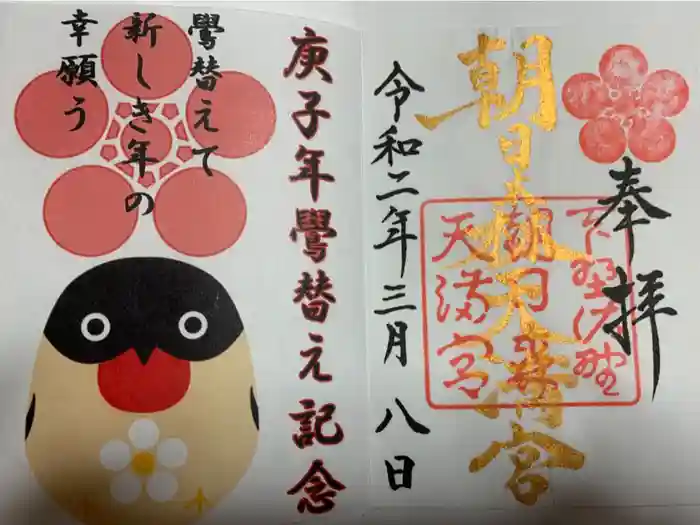 奉拝
朝日森天満宮
下野佐野
朝日森
天満宮
令和二年三月八日
庚子年鷽替え記念
鷽替えて
新しき年の
幸願う